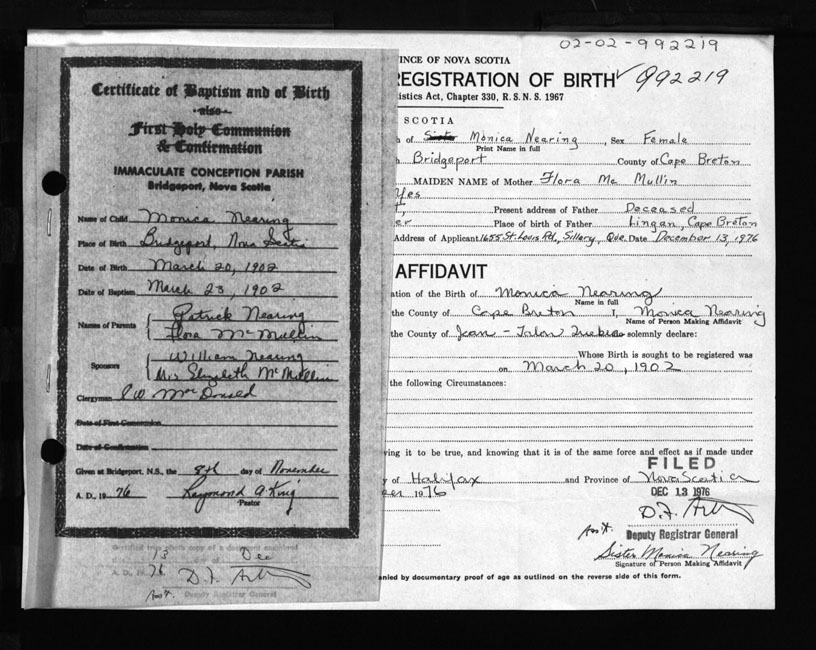 Certificate of Baptism and of Birth
also
First Holy Communion
& Confirmation
IMMACULATE CONCEPTION PARISH
Bridgeport, Nova Scotia
Name of Child Monica Nearing
Place of Birth Bridgeport, Nova Scotia
Date of Birth March 20, 1902
Date of Baptism March 23, 1902
Names of Parents Patrick Nearing
Flora McMullin
Sponsors William Nearing
Mrs Elizabeth McMullin
Clergyman McDonald
Date of First Communion
Date of Confirmation
Given at Bridgeport, N.S., the 8th day of November
A. D., 1976 Raymond A King
Pastor
13 Dec
A. D., 1976
Deputy Registrar General
02-02-992219
INCE OF NOVA SCOTIA
REGISTRATION OF BIRTH 992219
istics Act, Chapter 330, R. S. N. S. 1967
SCOTIA
of Sister Monica Nearing, Sex Female
Print Name in full
Bridgeport County of Cape Breton
MAIDEN NAME of Mother Flora Mc Mullin
Yes
Present address of Father Deceased
er Place of birth of Father Lingan, Cape Breton
Address of Applicant 1655 St. Louis Rd., Sillery, Que. Date December 13, 1976
AFFIDAVIT
ation of the Birth of Monica Nearing
Name in full
the County of Cape Breton I, Monica Nearing
Name of Person Making Affidavit
the County of Jean-Talon Quebec solemnly declare:
Whose Birth is sought to be registered was
on March 20, 1902
the following Circumstances:
ving it to be true, and knowing that it is of the same force and effect as if made under
y of Halifax and Province of Nova Scotia
FILED
ber 1976
DEC 13 1976
Asst.
Deputy Registrar General
Sister Monica Nearing
Signature of Person Making Affidavit
anied by documentary proof of age as outlined on the reverse side of this form.